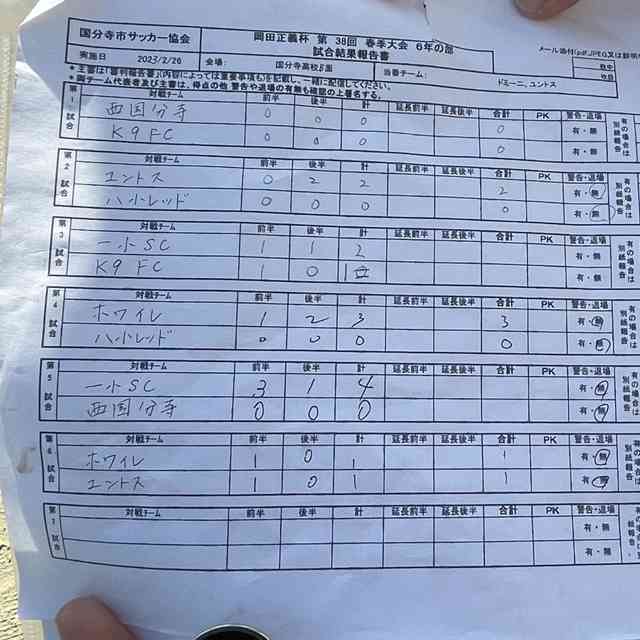 国分寺市サッカー協会 岡田正義杯 第38回 春季大会 6年の部
試合結果報告書
メール添付(pdf,JPEG又は鮮明
実施日 2023/2/26 会場: 国分寺高校G面 当番チーム: ドミーニ、ユントス
*主審は「審判報告書」(内容によっては重要事項も)を記載し、一緒に配信してください。
*両チーム代表者及び主審は、得点の他 警告や退場の有無も確認の上署名する。
第1試合 対戦チーム 前半 後半 計 延長前半 延長後半 合計 PK 警告・退場 有の場合は別紙報告
西国分寺 0 0 0 0 有・無
K9FC 0 0 0 0 有・無
第2試合 対戦チーム 前半 後半 計 延長前半 延長後半 合計 PK 警告・退場 有の場合は別紙報告
ユントス 0 2 2 2 有・無
八小レッド 0 0 0 0 有・無
第3試合 対戦チーム 前半 後半 計 延長前半 延長後半 合計 PK 警告・退場 有の場合は別紙報告
一小SC 1 1 2 有・無
K9 FC 1 0 1 有・無
第4試合 対戦チーム 前半 後半 計 延長前半 延長後半 合計 PK 警告・退場 有の場合は別紙報告
ホワイレ 1 2 3 3 有・無
八小レッド 0 0 0 0 有・無
第5試合 対戦チーム 前半 後半 計 延長前半 延長後半 合計 PK 警告・退場 有の場合は別紙報告
一小SC 3 1 4 有・無
西国分寺 0 0 0 有・無
第6試合 対戦チーム 前半 後半 計 延長前半 延長後半 合計 PK 警告・退場 有の場合は別紙報告
ホワイレ 1 0 1 1 有・無
ユントス 1 0 1 1 有・無
第7試合 対戦チーム 前半 後半 計 延長前半 延長後半 合計 PK 警告・退場 有の場合は別紙報告
有・無
有・無